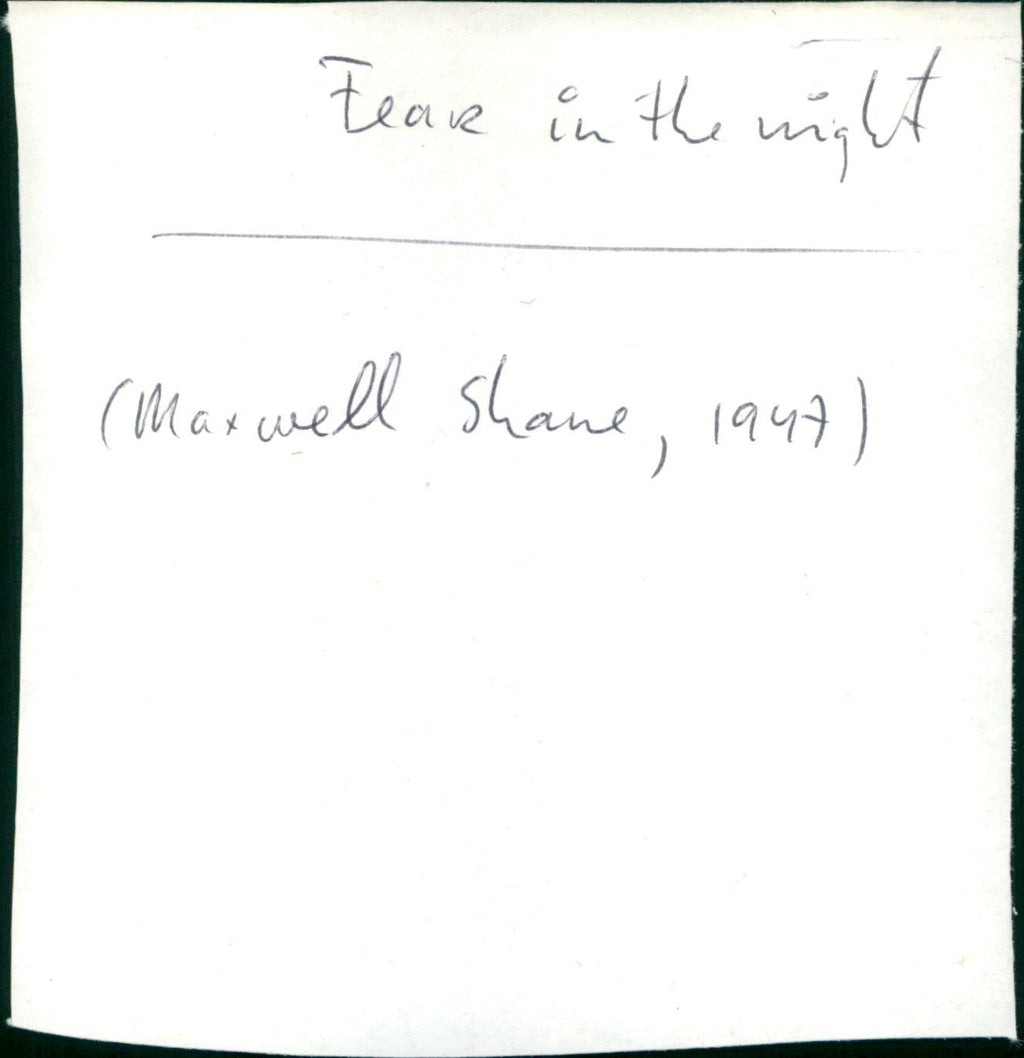 Fear in the night
(Maxwell Shane, 1947)